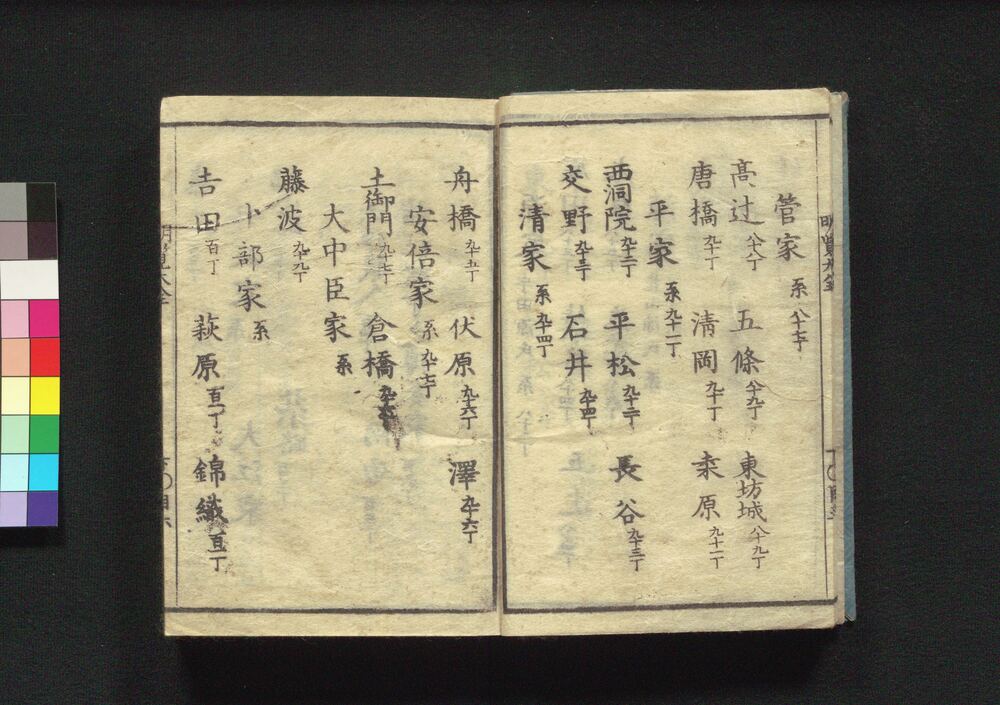 菅家 系 八十七丁
高辻 八十八丁 五條 八十九丁 東坊城 八十九丁
唐橋 九十丁 清岡 九十丁 桒原 九十一丁
平家 系 九十二丁
西洞院 九十二丁 平松 九十二丁 長谷 九十三丁
交野 九十三丁 石井 九十四丁
清家 系 九十四丁
舟橋 九十五丁 伏原 九十六丁 澤 九十六丁
安倍家 系 九十七丁
土御門 九十七丁 倉橋
大中臣家 系
藤波 九十九丁
卜部家 系
吉田 百丁 萩原 百一丁 錦織 百一丁